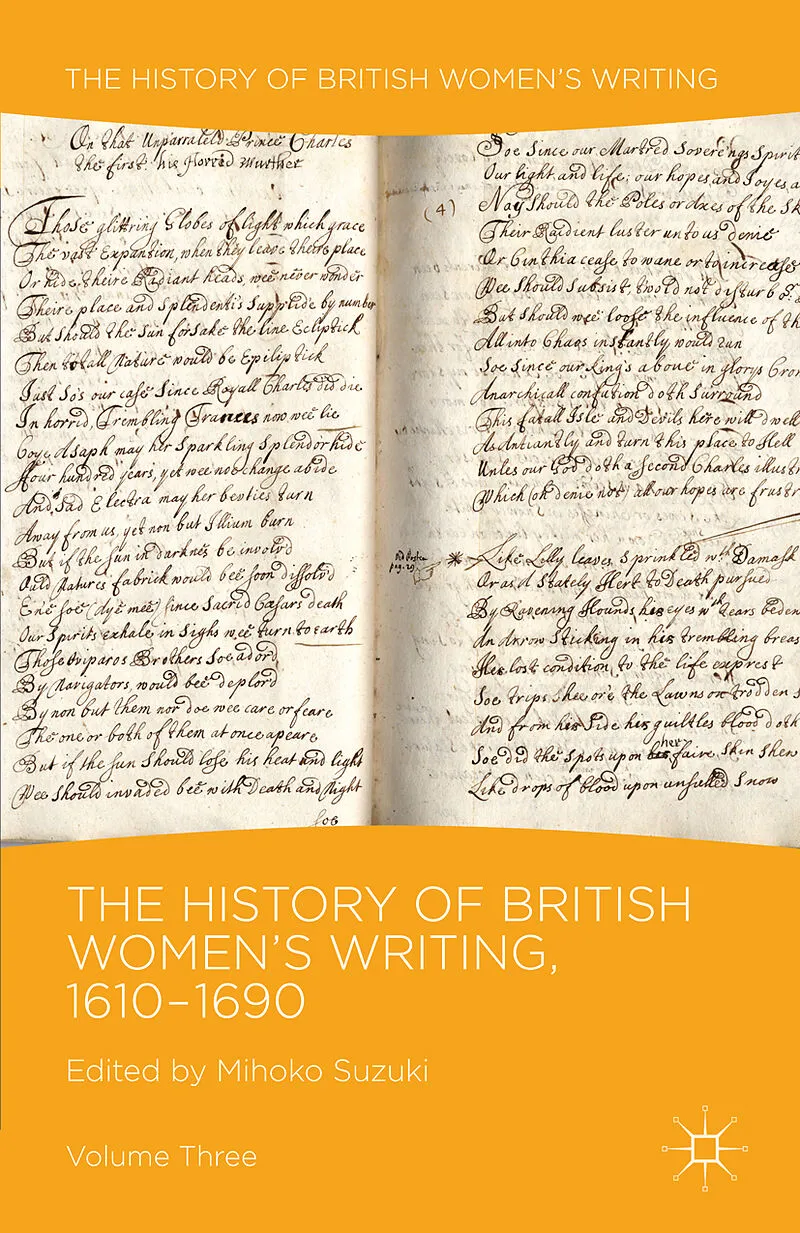 THE HISTORY OF BRITISH WOMEN'S WRITING
On that Unparraleld Prince Charles
the first: his Horred Murther
Those glittring Globes of light which grace
The vast Expantion, when they leave theire place
Or hide theire Radiant heads, wee never wonder
Theire place and Splendenti's Supplide by number
But should the Sun forsake the line Ecliptick
Then totall Nature would be Epiliptick
Just So's our case Since Royall Charles did die
In horrid, Trembling Trances now wee lie
Coye Asaph may her Sparkling Splendor hide
Four hundred years, yet wee noe change abide
And Sad Electra may her bevties turn
Away from us, yet non but Illium burn
But if the sun in darknes be involvd
Ould Natures fabrick would bee soon dissolvd
Ene soe (dye mee) since Sacred Cæsars death
Our Spirits exhale in Sighs wee turn to earth
Those Oviparos Brothers soe adord
By Navigators, would bee deplord
By non but them nor doe wee care or feare
The one or both of them at once apeare
But if the sun Should lose his heat and light
Wee Should invaded bee with Death and Night
soe
Soe Since our Martred Soverengs Spirit
Our light and life; our hopes and Joyes a
(4)
Nay Should the Poles or Axes of the Sk
Their Raidient luster unto us denie
Or Cinthia cease to wane or to increase
Wee Should Subsist
But Should wee loose the influence of th
All into Chaos instantly would run
Soe Since our king's above in glorys Cron
Anarchicall confution doth Surround
This fatall Isle and Devils here will dwell
As Antiantly and turn this place to Hell
Unles our God doth a Second Charles illustr
Which (oh denie not) all our hopes are frustr
* Like Lilly leaves Sprinkled wth Damask
Or as A Stately Hert to Death pursued
By Ravening Hounds his eyes wth tears beden
An Arrow Sticking in his trembling breas
His lost condition, to the life exprest
Soe trips Shee ore the Lawns on trodden s
And from his Side his guiltles blood doth
Soe did the Spots upon his her faire Skin shew
Like drops of blood upon unsulled Snow
THE HISTORY OF BRITISH
WOMEN'S WRITING,
1610–1690
Edited by Mihoko Suzuki
Volume Three